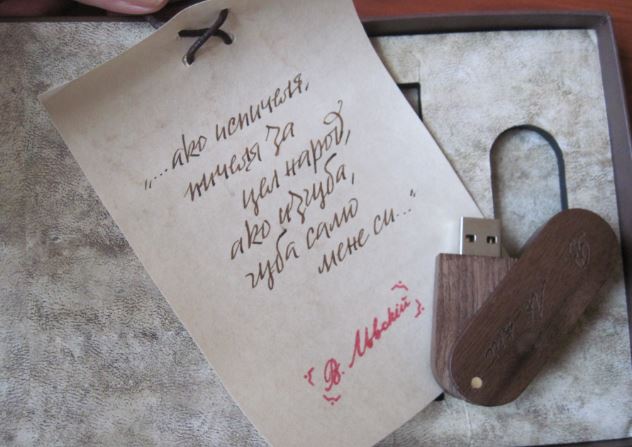 „...ако испичеля,
пичеля за
цел народ,
ако изгубя,
губа само
мене си..."
В. Львскій